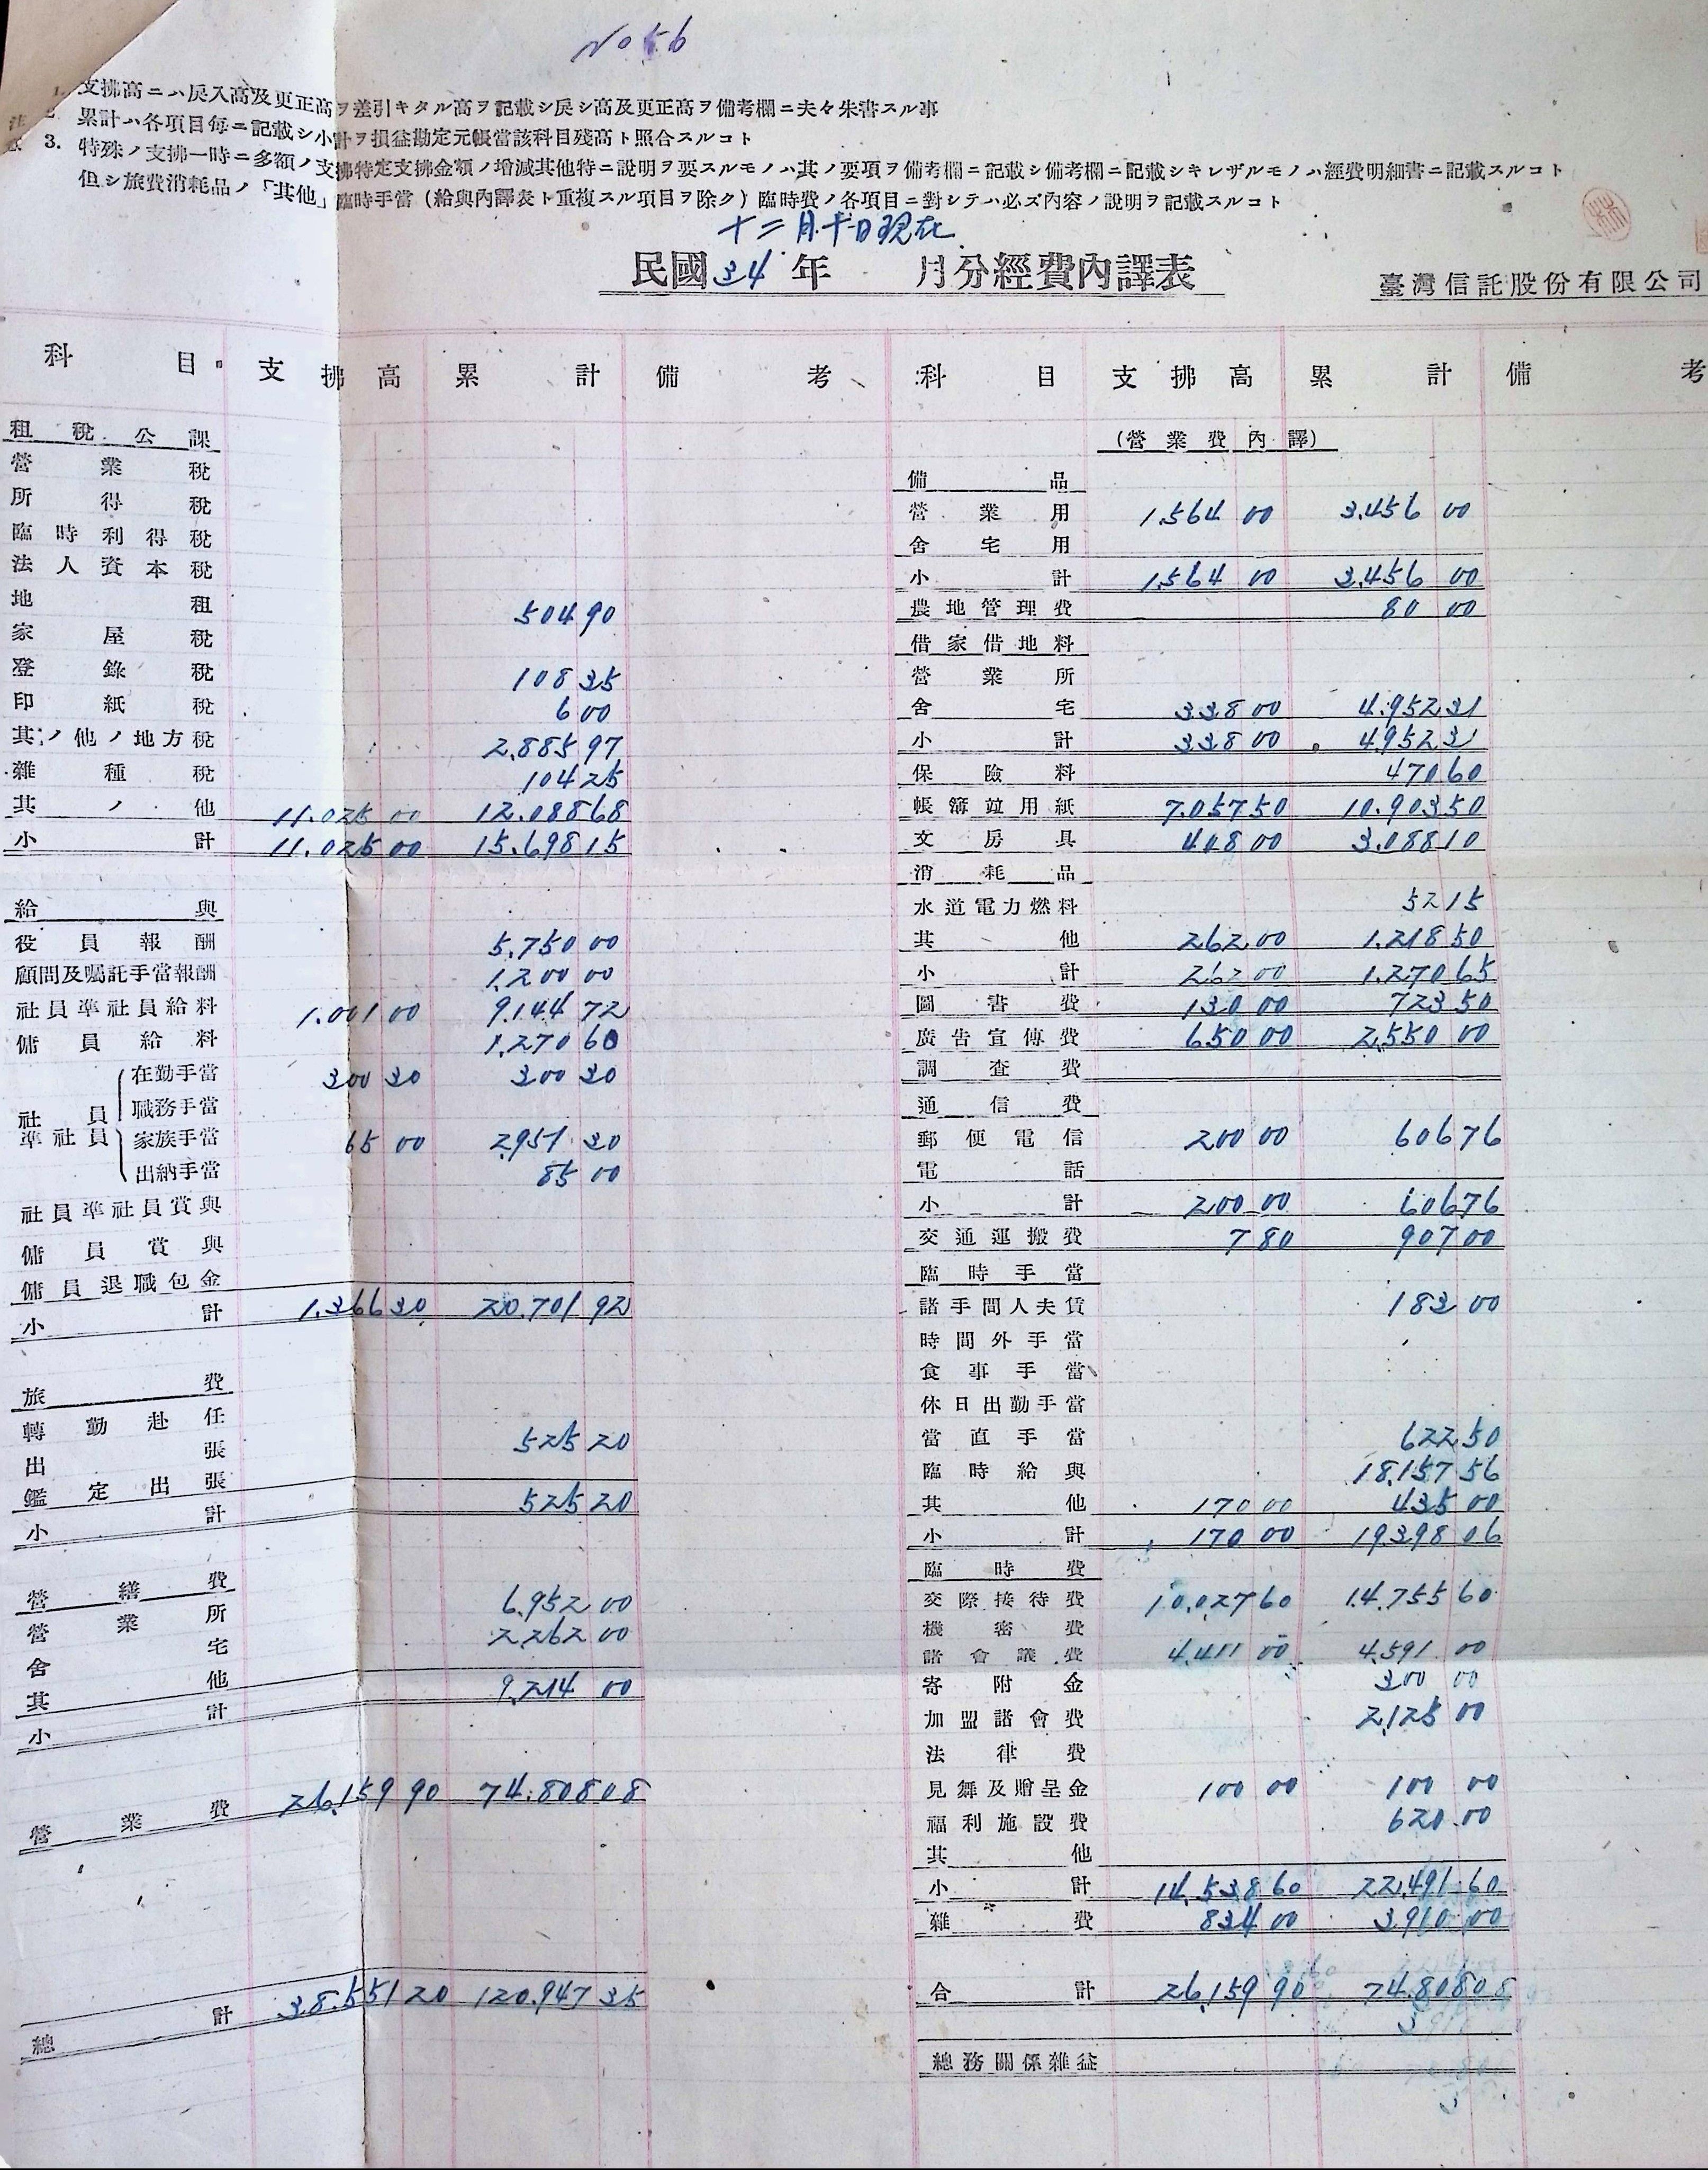 No 56
1. 支拂高ニハ戻入高及更正高ヲ差引キタル高ヲ記載シ戻シ高及更正高ヲ備考欄ニ夫々朱書スル事
2. 累計ハ各項目每ニ記載シ小計ヲ損益勘定元帳當該科目殘高ト照合スルコト
3. 特殊ノ支拂一時ニ多額ノ支拂特定支拂金額ノ增減其他特ニ說明ヲ要スルモノハ其ノ要項ヲ備考欄ニ記載シ備考欄ニ記載シキレザルモノハ經費明細書ニ記載スルコト
但シ旅費消耗品ノ「其他」臨時手當(給與內譯表ト重複スル項目ヲ除ク)臨時費ノ各項目ニ對シテハ必ズ內容ノ說明ヲ記載スルコト
十二月十日現在
民國34年 月分經費內譯表
臺灣信託股份有限公司
科目 支拂高 累計 備考
租稅公課
營業稅
所得稅
臨時利得稅
法人資本稅
地租 504 90
家屋稅
登錄稅 108 35
印紙稅 6 00
其ノ他ノ地方稅 2.885 97
雜種稅 104 25
其ノ他 11.025 00 12.088 68
小計 11.025 00 15.698 15
給與
役員報酬 5.750 00
顧問及囑託手當報酬 1.200 00
社員準社員給料 1.001 00 9.144 72
傭員給料 1.270 60
社員準社員
在勤手當 300 30 300 30
職務手當
家族手當 65 00 2.951 30
出納手當 85 00
社員準社員賞與
傭員賞與
傭員退職包金
小計 1.366 30 20.701 92
旅費
轉勤赴任
出張 525 20
鑑定出張
小計 525 20
營繕費
營業所 6.952 00
舍宅 2.262 00
其他
小計 9.214 00
營業費 26.159 90 74.808 08
總計 38.551 20 120.947 35
科目 支拂高 累計 備考
(營業費內譯)
備品
營業用 1.564 00 3.456 00
舍宅用
小計 1.564 00 3.456 00
農地管理費 80 00
借家借地料
營業所
舍宅 338 00 4.952 31
小計 338 00 4952 31
保險料 470 60
帳簿並用紙 7.057 50 10.903 50
文房具 408 00 3.088 10
消耗品
水道電力燃料 52 15
其他 262 00 1.218 50
小計 262 00 1.270 65
圖書費 130 00 723 50
廣告宣傳費 650 00 2,550 00
調查費
通信費
郵便電信 200 00 606 76
電話
小計 200 00 606 76
交通運搬費 7 80 907 00
臨時手當
諸手間人夫賃 183 00
時間外手當
食事手當
休日出勤手當
當直手當 622 50
臨時給與 18.157 56
其他 170 00 435 00
小計 170 00 19.398 06
臨時費
交際接待費 10.027 60 14.755 60
機密費
諸會議費 4.411 00 4.591 00
寄附金 300 00
加盟諸會費 2.125 00
法律費
見舞及贈呈金 100 00 100 00
福利施設費 620.00
其他
小計 14.538 60 22.491 60
雜費 834 00 3.910 00
合計 26.159 90 74.808 08
總務關係雜益